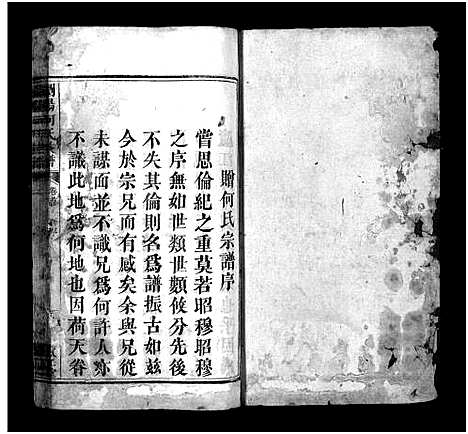 贈何氏宗譜序
嘗思倫紀之重莫若昭穆昭穆
之序無如世類世類攸分先後
不失其倫則名爲譜振古如茲
今於宗兄而有感矣余與兄從
未謀面並不識兄爲何許人亦
不識此地爲何地也因荷天眷